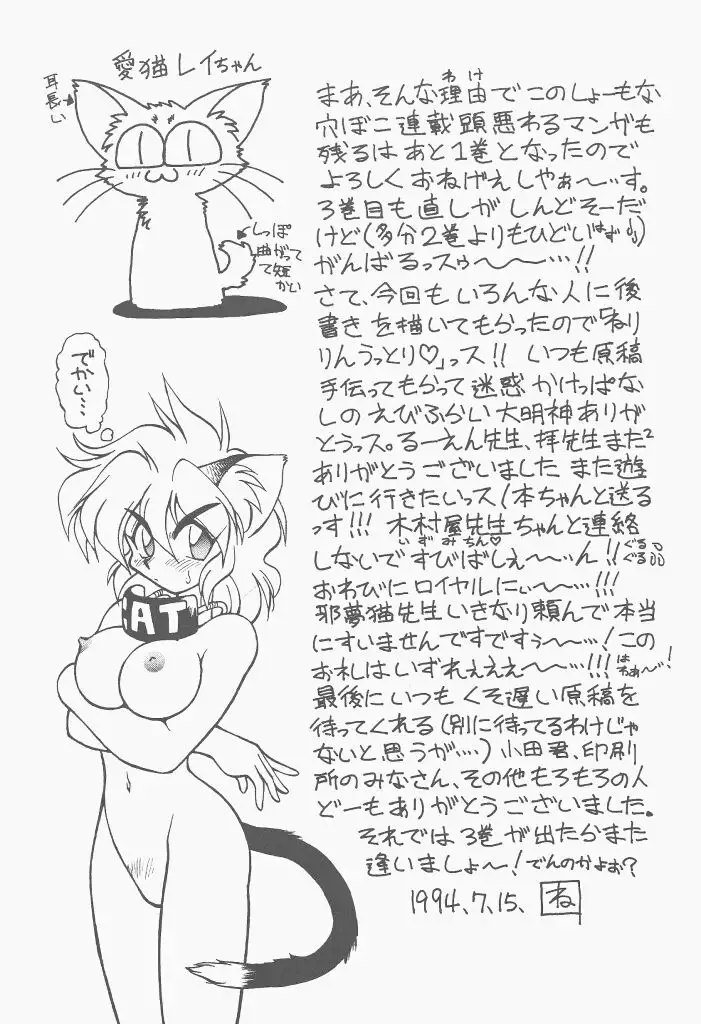 愛猫レイちゃん
耳長い
しっぽ
曲がって
て短
かい
でかい…
CAT
まあ、そんな理由でこのしょーもな
わけ
穴ぼこ連載頭悪わるマンガも
残るはあと1巻となったので
よろしくおねげえしやぁ〜…す。
3巻目も直しがしんどそーだ
けど(多分2巻よりもひどいはず)
がんばるっスゥ〜〜…!!
さて、今回もいろんな人に後
書きを描いてもらったので「ねり
りんうっとり♡」っス!! いつも原稿
手伝ってもらって迷惑かけっぱな
しのえびふらい大明神ありが
とうっス。るーえん先生、拝先生また2
ありがとうございました また遊
びに行きたいっス!本ちゃんと送る
っす!!! 木村屋先生ちゃんと連絡
いずみちん♡
しないですびばしぇ〜…ん!!ぐるぐる
おわびにロイヤルにぃ〜…!!!
邪夢猫先生いきなり頼んで本当
にすいませんですですぅ〜…!この
お礼はいずれぇぇぇ〜〜…!!!はわぁ〜…!
最後にいつもくそ遅い原稿を
待ってくれる(別に待ってるわけじゃ
ないと思うが…)小田君、印刷
所のみなさん、その他もろもろの人
どーもありがとうございました。
それでは3巻が出たらまた
逢いましょ〜!でんのかよぉ?
1994.7.15. ね